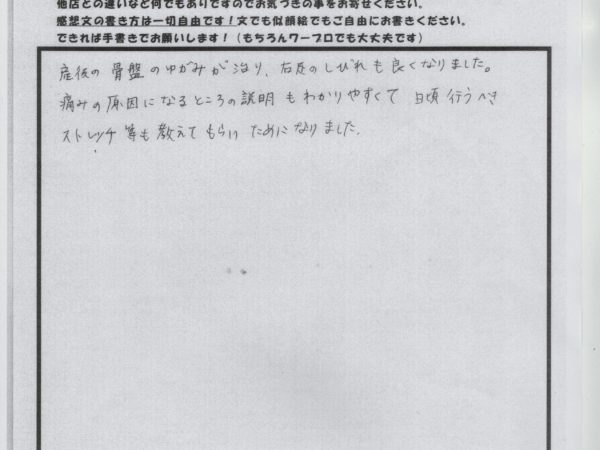 他店との違いなど何でもありですのでお気づきの事をお寄せください。
感想文の書き方は一切自由です！文でも似顔絵でもご自由にお書きください。
できれば手書きでお願いします！（もちろんワープロでも大丈夫です）
産後の骨盤のゆがみが治り、右足のしびれも良くなりました。
痛みの原因になるところの説明もわかりやすくて日頃行うべき
ストレッチ等も教えてもらいためになりました。